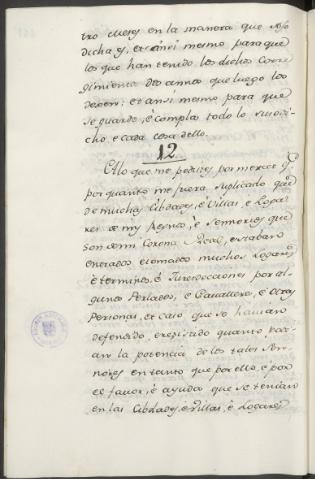 tro meses en la manera que suso
dicha es, et ansi mesmo para que
los que han tenido los dichos Corre
gimientos dos annos que luego los
dexen: et ansi mesmo para que
se guarde, e compla todo lo susodi
cho, e cada cosa dello.
12
A lo que me pedistes por merced q
por quanto me fuera suplicado que
de muchas Cibdades, e Villas, e Loga
res de mis Regnos, e Sennorios que
son de mi Corona Real, estaban
entrados e tomados muchos Logares
e terminos, e Jurediciones por al
gunos Perlados, e Cavalleros, e otras
Personas, et caso que se havian
defendido, e resistido quanto pod
ian la potencia de los tales Sen
nores en tanto que por ello, e por
el favor, e ayuda que se tenian
en las Cibdades, e Villas, e Logares